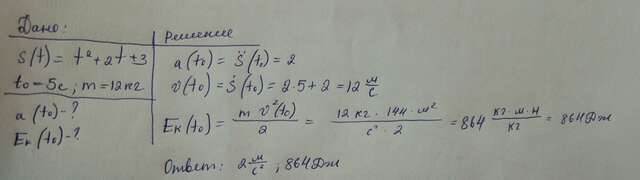 Дано:
S(t) = t² + 2t + 3
t₀ – 5с ; m = 12кг
a(t₀) – ?
Eк(t₀) – ?
Решение
a(t₀) = S̈(t₀) = 2
v(t₀) = Ṡ(t₀) = 2·5+2 = 12 м/с
Eк(t₀) = m v²(t₀)/2 = 12 кг · 144 · м²/с² · 2 = 864 кг·м·н/кг = 864Дж
Ответ: 2 м/с² ; 864Дж